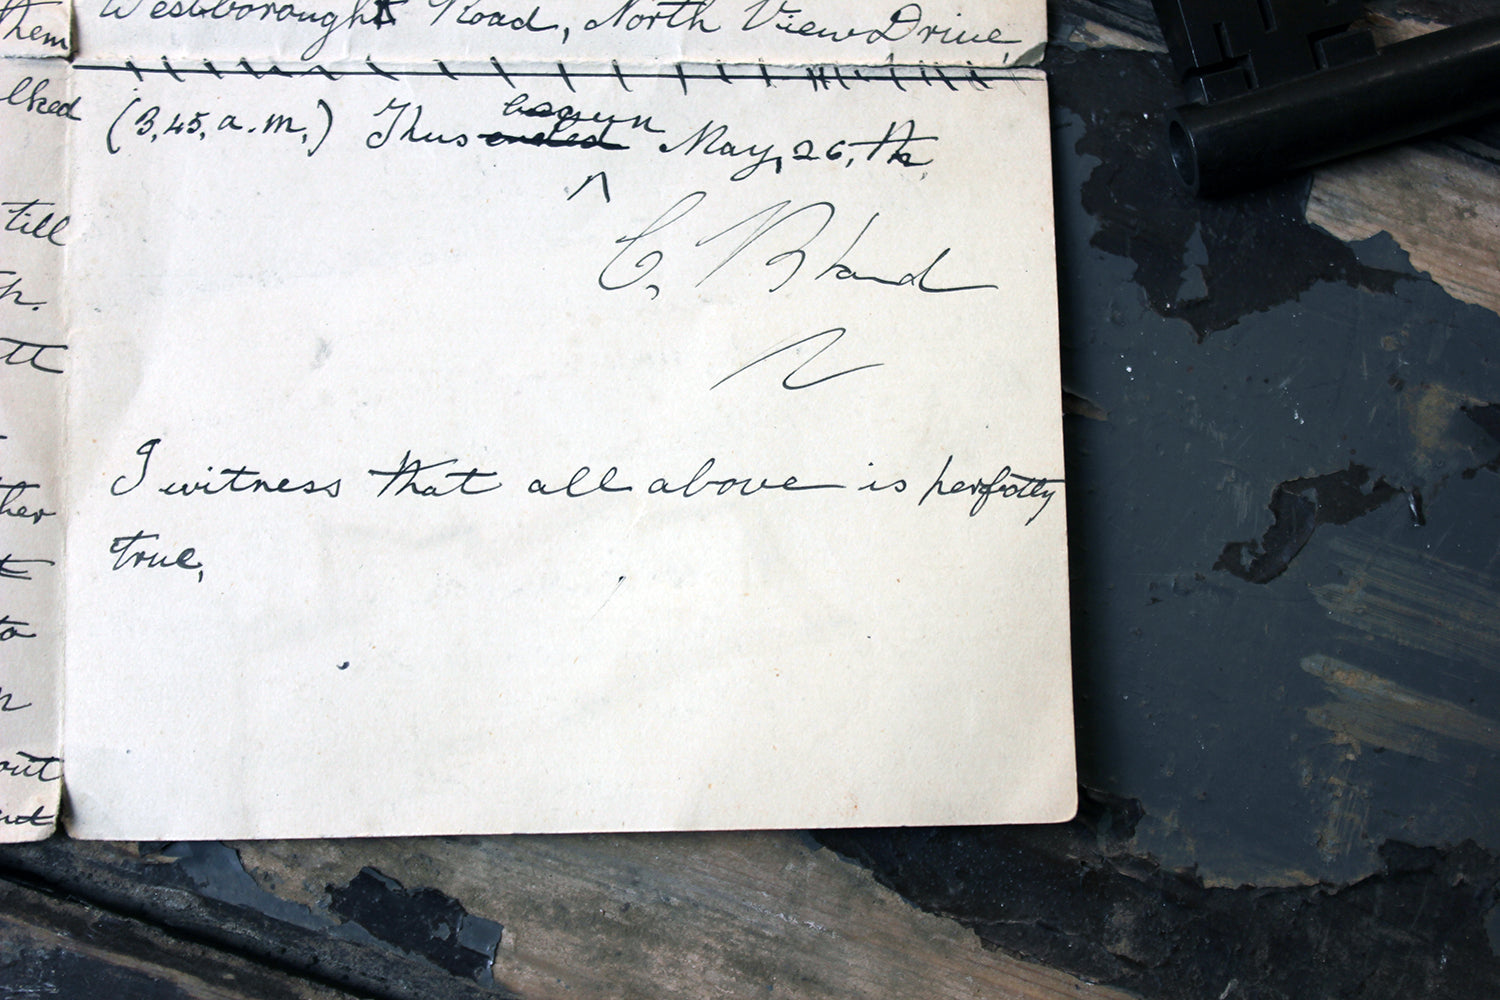 them
Westborough Road, North View Drive,
lked
(3,45, a.m.) Thus ended begun May, 26, th
till
C. Bland
I witness that all above is perfectly
ther
true,
to
out